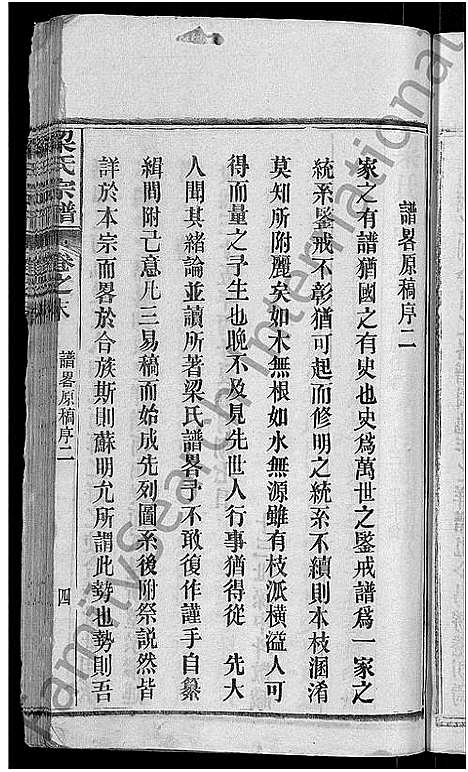 譜畧原稿序二
家之有譜猶國之有史也史爲萬世之鑒戒譜爲一家之
統系鑒戒不彰猶可起而修明之統系不續則本枝溷淆
莫知所附麗矣如木無根如水無源雖有枝派橫溢人可
得而量之予生也晚不及見先世人行事猶得從 先大
人聞其緒論並讀所著梁氏譜畧予不敢復作謹手自纂
緝間附己意凡三易稿而始成先列圖系後附祭説然皆
詳於本宗而畧於合族斯則蘇明允所謂此勢也勢則吾
梁氏宗譜
卷之末
譜畧原稿序二
四
FamilySearch International